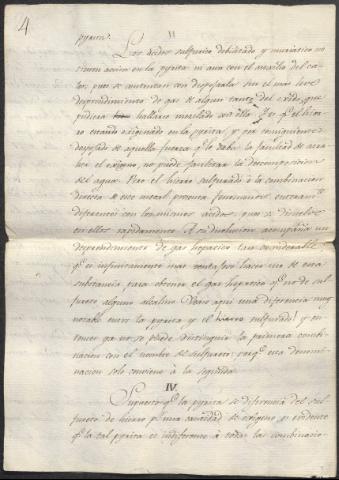 4
pyrita.
II
Los ácidos sulfurico debilitado y muriatico no
tienen accion en la pyrita ni aun con el auxilio del ca-
lor, pues se contentan con despojarla sin el más leve
desprendimiento de gas de algun tanto del oxîde que
pudiera hallarse mezclado con ella. Yà q.e el hier-
ro estando oxîginado en la pyrita, y por consiguiente
despojado de aquella fuerza q.e le daba la facultad de atra-
her el oxîgno, no puede facilitar la decomposicion
del agua. Pero el hierro sulfurado ò la combinacion
directa de este metal presenta fenomenos enteram.te
diferentes con los mismos ácidos, pues se disuelve
en ellos rapidamente. A su disolucion acompaña un
desprendimiento de gas hepatico tan considerable
q.e es infinitamente mas ventajoso hacer uso de esta
substancia para obtener el gas hepatico q.e no de sul-
fureto alguno alcalino. Vease aqui una diferencia muy
notable entre la pyrita y el hierro sulfurado! y en-
tonces ya no se puede distinguir la primera combi-
nacion con el nombre de sulfureto: porq.e esta denomi-
nacion solo conviene à la segunda.
IV.
Supuesto q.e la pyrita se diferencia del sul-
fureto de hierro p.r una cantidad de oxîgeno, es evidente
q.e la tal pyrita es indiferente à todas las combinacio-